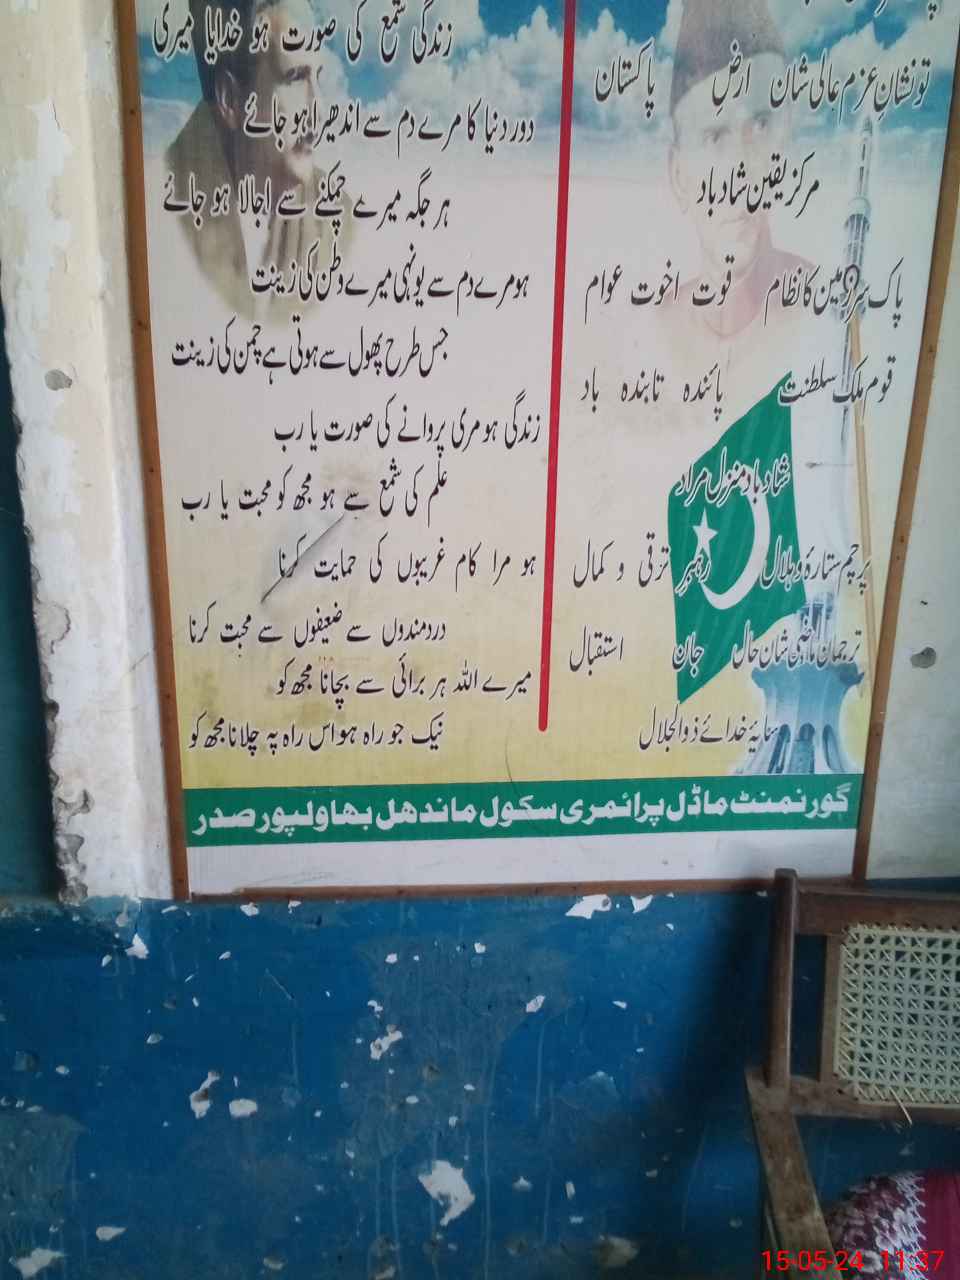 تو نشانِ عزم عالی شان ارضِ پاکستان
مرکز یقین شاد باد
پاک سرزمین کا نظام قوت اخوت عوام
قوم ملک سلطنت پائندہ تابندہ باد
شاد باد منزل مراد
پرچم ستارۂ و ہلال رہبر ترقی و کمال
ترجمان ماضی شان حال جان استقبال
سایۂ خدائے ذوالجلال
زندگی شمع کی صورت ہو خدایا میری
دور دنیا کا مرے دم سے اندھیرا ہو جائے
ہر جگہ میرے چمکنے سے اجالا ہو جائے
ہو مرے دم سے یونہی میرے وطن کی زینت
جس طرح پھول سے ہوتی ہے چمن کی زینت
زندگی ہو مری پروانے کی صورت یا رب
علم کی شمع سے ہو مجھ کو محبت یا رب
ہو مرا کام غریبوں کی حمایت کرنا
دردمندوں سے ضعیفوں سے محبت کرنا
میرے اللہ ہر برائی سے بچانا مجھ کو
نیک جو راہ ہو اس راہ پہ چلانا مجھ کو
گورنمنٹ ماڈل پرائمری سکول ماندھل بھاولپور صدر
15-05-24 11:37